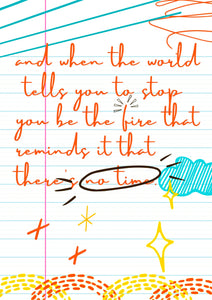 and when the world
tells you to stop
you be the fire that
reminds it that
there's no time